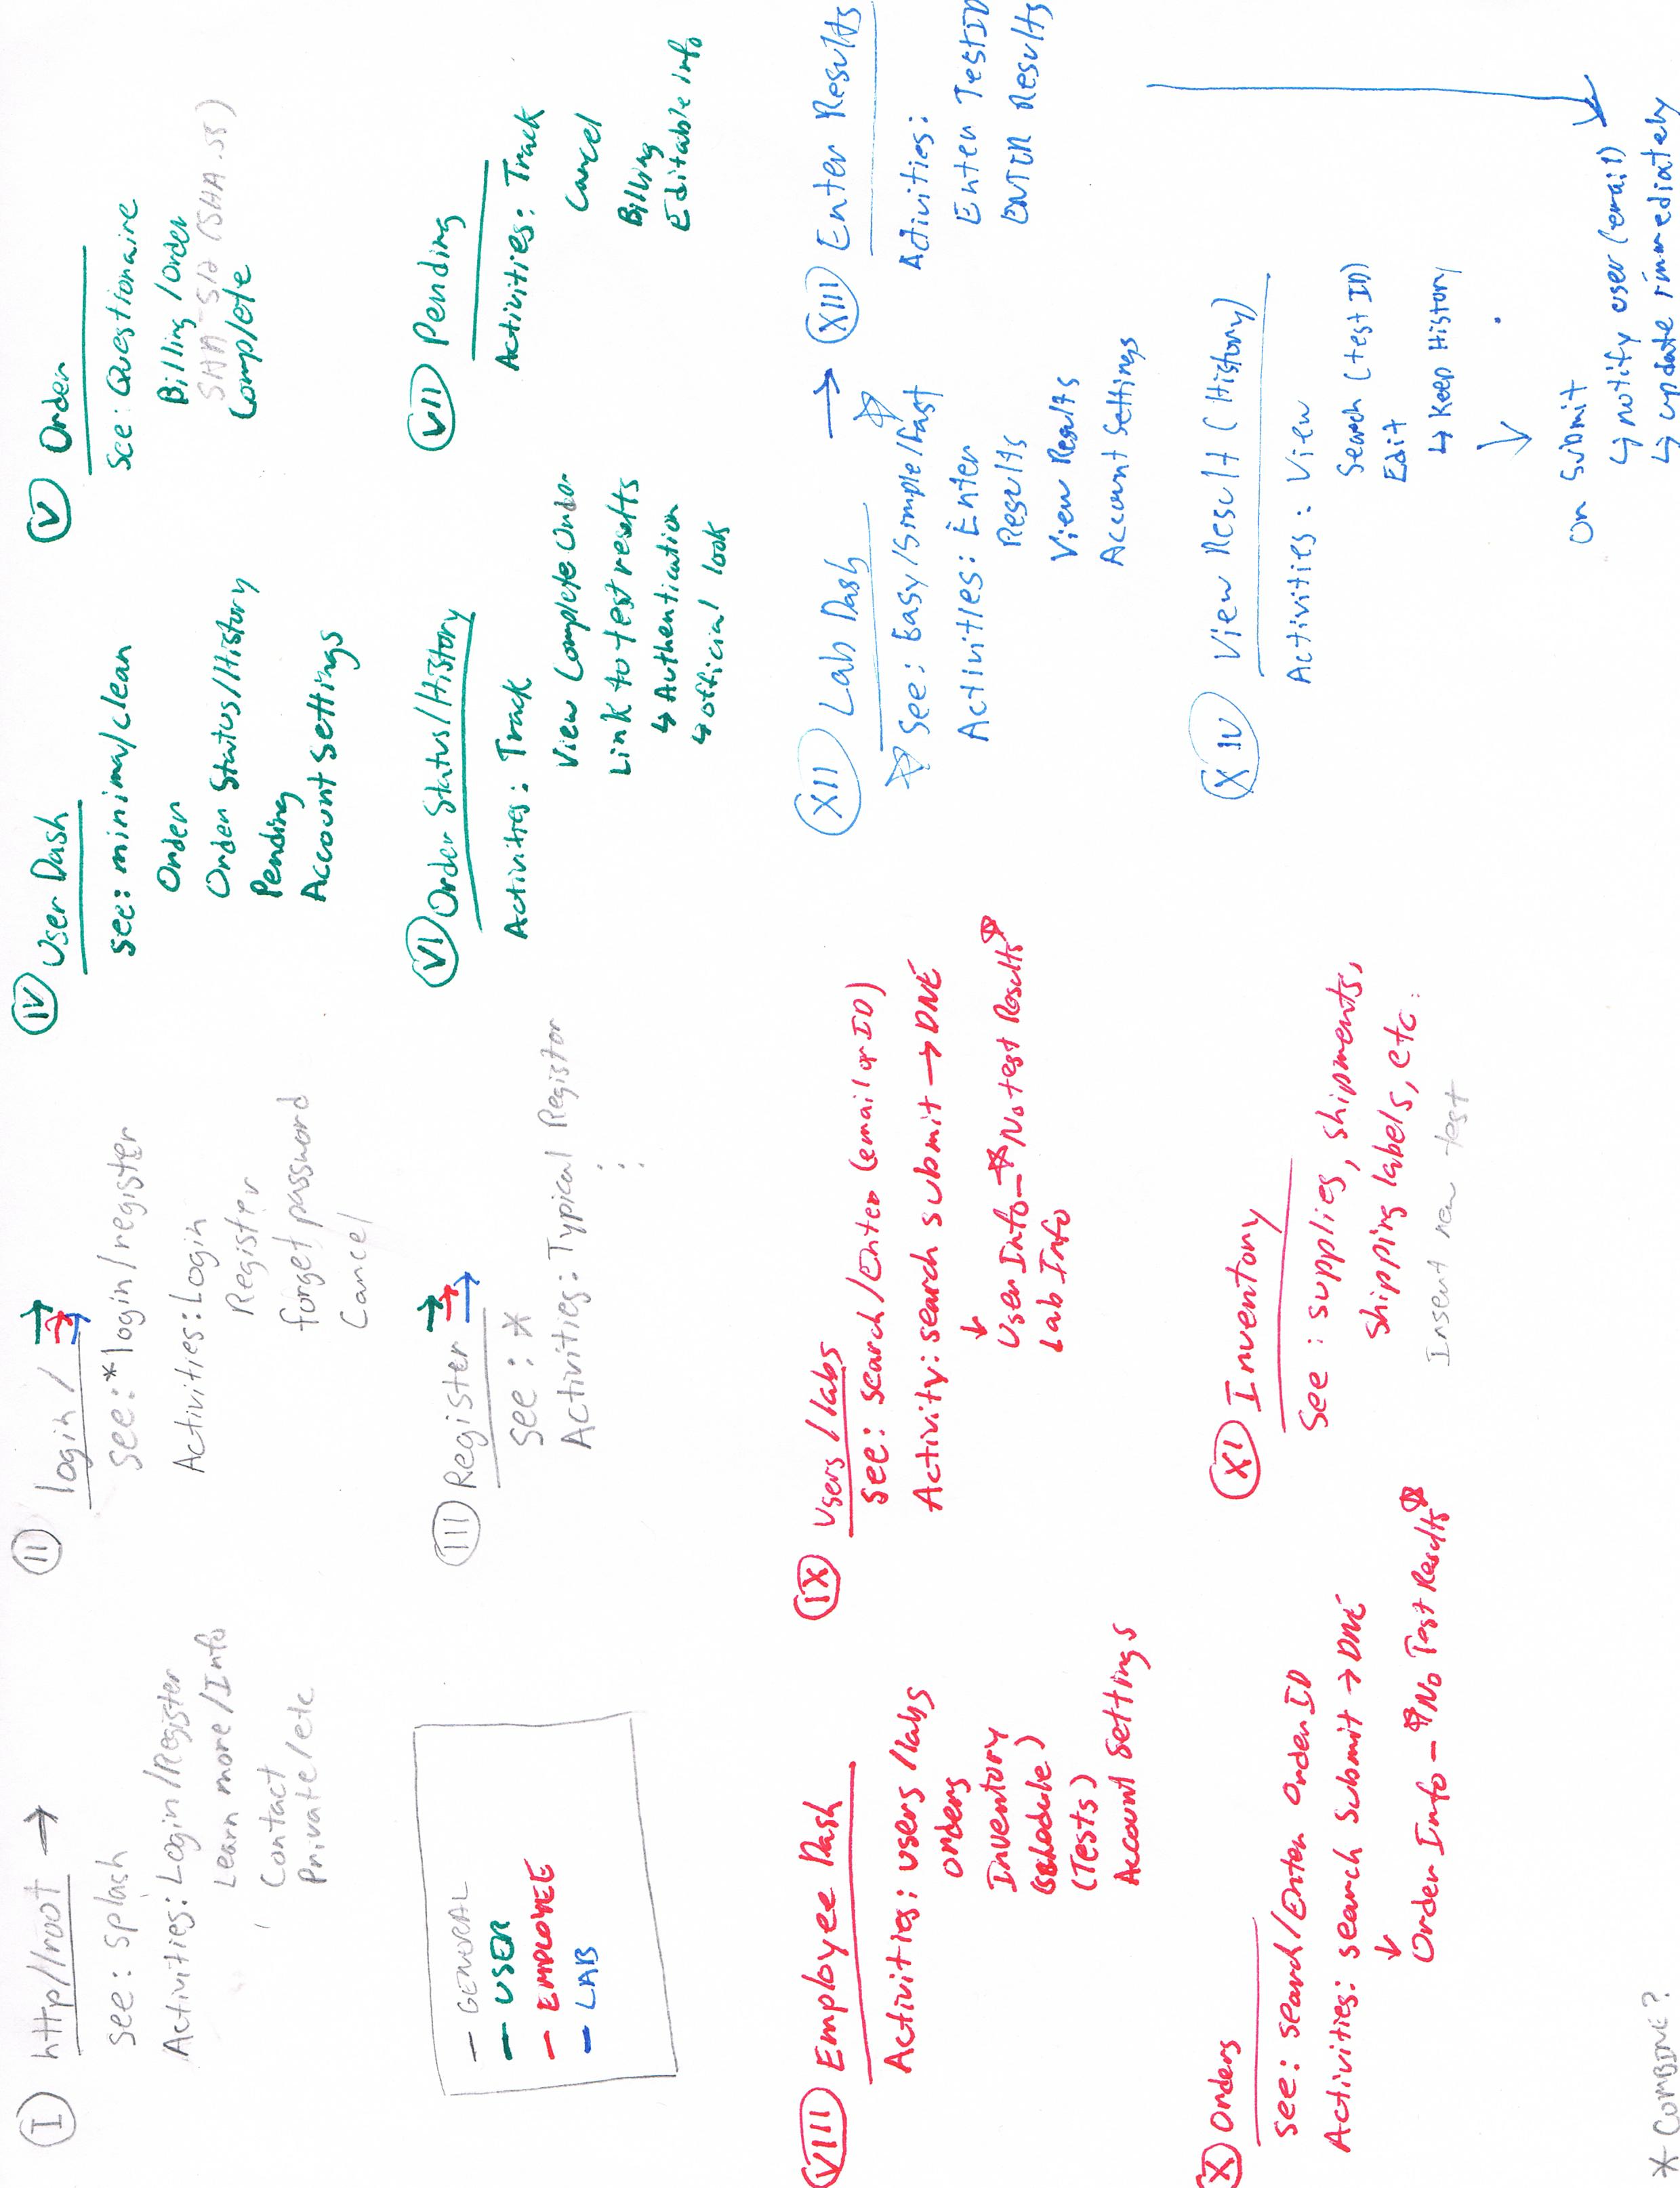 I http/root →
see: splash
Activities: Login/Register
Learn more/Info
Contact
Private/etc
II login/ →→→
see: * login/register
Activities: Login
Register
forget password
Cancel
— GENERAL
— USER
— EMPLOYEE
— LAB
III Register →→→
see: *
Activities: Typical Registor
IV User Dash
see: minimal/clean
Order
Order Status/History
Pending
Account settings
V Order
See: Questionaire
Billing/Order
SHA-512 (SHA.js)
Complete
VI Order Status/History
Activities: Track
View Complete Order
Link to test results
↳ Authentication
↳ official look
VII Pending
Activities: Track
Cancel
Billing
Editable info
VIII Employee Dash
Activities: users/labs
orders
Inventory
(Schedule)
(Tests)
Account Settings
IX Users/labs
See: search/Enter (email or ID)
Activity: search submit → DNE
↓
User Info - *No test Results*
Lab Info
X Orders
see: search/Enter Order ID
Activities: search submit → DNE
↓
Order Info - *No Test Results*
XI Inventory
See: supplies, shipments,
shipping labels, etc.
Insert new test
XII Lab Dash →
☆ See: Easy/Simple/Fast ☆
Activities: Enter
Results
View Results
Account Settings
XIII Enter Results
Activities:
Enter TestID
ENTER Results
XIV View Result (History)
Activities: View
Search (test ID)
Edit
↳ Keep History
↓
On Submit
↳ notify user (email)
↳ update immediately
* COMBINE?